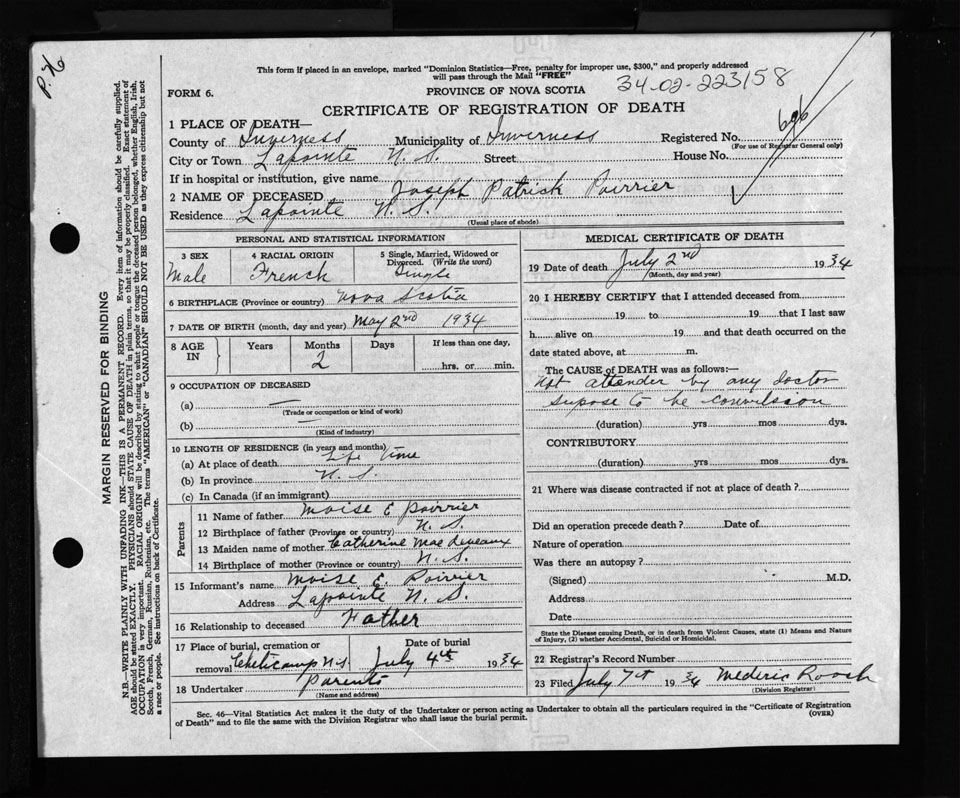 P.X
This form if placed in an envelope, marked "Dominion Statistics—Free, penalty for improper use, $300," and properly addressed
will pass through the Mail "FREE"
34-02-223158
FORM 6.
PROVINCE OF NOVA SCOTIA
CERTIFICATE OF REGISTRATION OF DEATH
1 PLACE OF DEATH—
County of Inverness Municipality of Inverness Registered No. 696
(For use of Registrar General only)
City or Town Lapointe N. S. Street House No.
If in hospital or institution, give name
2 NAME OF DECEASED Joseph Patrick Poirrier
Residence Lapointe N. S.
(Usual place of abode)
PERSONAL AND STATISTICAL INFORMATION
3 SEX 4 RACIAL ORIGIN 5 Single, Married, Widowed or
Divorced. (Write the word)
Male French Single
6 BIRTHPLACE (Province or country) Nova Scotia
7 DATE OF BIRTH (month, day and year) May 2nd 1934
8 AGE IN Years Months Days If less than one day,
2 hrs. or min.
9 OCCUPATION OF DECEASED
(a) —
(Trade or occupation or kind of work)
(b) —
(Kind of industry)
10 LENGTH OF RESIDENCE (in years and months)
(a) At place of death Life Time
(b) In province N. S.
(c) In Canada (if an immigrant)
Parents
11 Name of father Moise E Poirrier
12 Birthplace of father (Province or country) N. S.
13 Maiden name of mother Catherine Mae Deveaux
14 Birthplace of mother (Province or country) N. S.
15 Informant's name Moise E. Poirier
Address Lapointe N. S.
16 Relationship to deceased Father
17 Place of burial, cremation or Date of burial
removal Cheticamp N.S. July 4th 1934
18 Undertaker Parents
(Name and address)
MEDICAL CERTIFICATE OF DEATH
19 Date of death July 2nd 1934
(Month, day and year)
20 I HEREBY CERTIFY that I attended deceased from
19 to 19 that I last saw
h alive on 19 and that death occurred on the
date stated above, at m.
The CAUSE of DEATH was as follows:—
Not attender by any doctor
supose to be convilsson
(duration) yrs mos dys.
CONTRIBUTORY
(duration) yrs mos dys.
21 Where was disease contracted if not at place of death?
Did an operation precede death? Date of
Nature of operation
Was there an autopsy?
(Signed) M.D.
Address
Date
State the Disease causing Death, or in death from Violent Causes, state (1) Means and Nature
of Injury, (2) whether Accidental, Suicidal or Homicidal.
22 Registrar's Record Number
23 Filed July 7th 1934 Mederic Roach
(Division Registrar)
Sec. 46—Vital Statistics Act makes it the duty of the Undertaker or person acting as Undertaker to obtain all the particulars required in the "Certificate of Registration
of Death" and to file the same with the Division Registrar who shall issue the burial permit. (OVER)
MARGIN RESERVED FOR BINDING
N.B.—WRITE PLAINLY WITH UNFADING INK—THIS IS A PERMANENT RECORD. Every item of information should be carefully supplied.
AGE should be stated EXACTLY. PHYSICIANS should STATE CAUSE OF DEATH in plain terms, so that it may be properly classified. Exact statement of
OCCUPATION is very important. RACIAL ORIGIN will be described by stating to what people or tongue the deceased person belonged, whether English, Irish,
Scotch, French, German, Russian, Ruthenian, etc. The terms "AMERICAN" or "CANADIAN" SHOULD NOT BE USED as they express citizenship but not
a race or people. See instructions on back of Certificate.